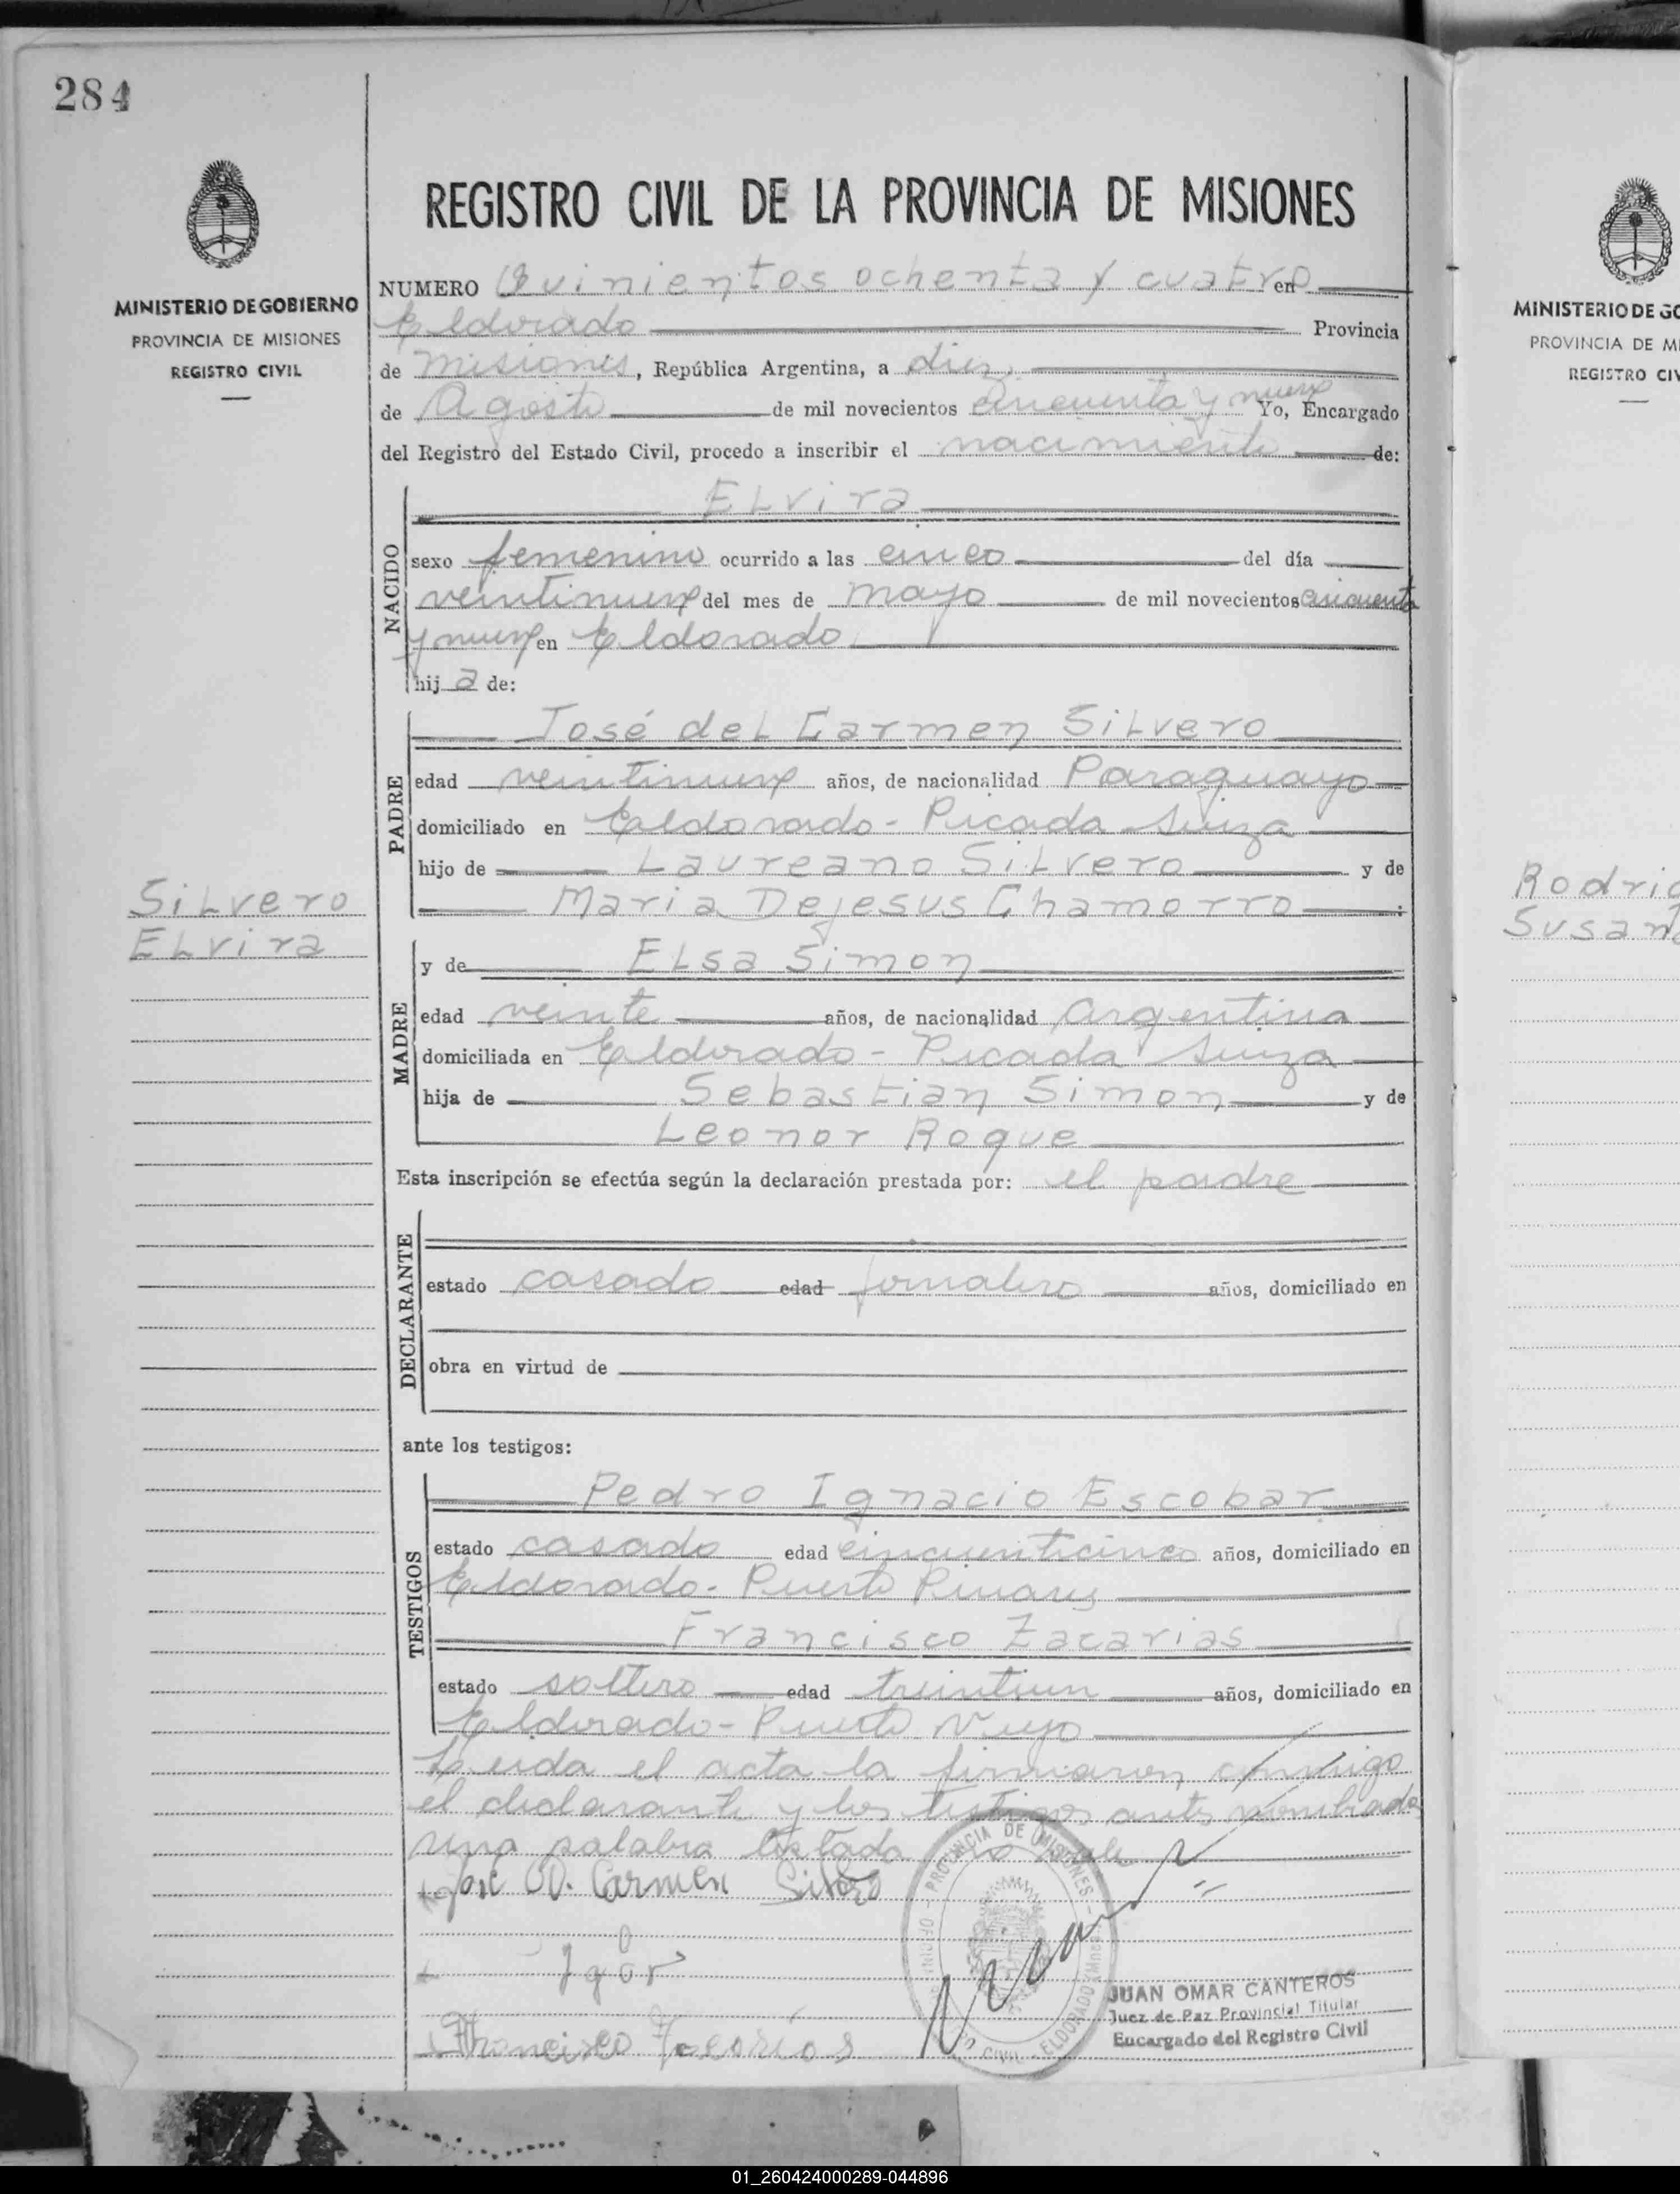 284
REGISTRO CIVIL DE LA PROVINCIA DE MISIONES
MINISTERIO DE GOBIERNO
PROVINCIA DE MISIONES
REGISTRO CIVIL
NUMERO Quinientos ochenta y cuatro en
Eldorado Provincia
de Misiones, República Argentina, a diez
de Agosto de mil novecientos cincuenta y nueve Yo, Encargado
del Registro del Estado Civil, procedo a inscribir el nacimiento de:
NACIDO
Elvira
sexo femenino ocurrido a las cinco del día
veintinueve del mes de mayo de mil novecientos cincuenta
y nueve en Eldorado
hija de:
PADRE
José del Carmen Silvero
edad veintinueve años, de nacionalidad Paraguayo
domiciliado en Eldorado - Picada Suiza
hijo de Laureano Silvero y de
Maria Dejesus Chamorro
Silvero
Elvira
MADRE
y de Elsa Simon
edad veinte años, de nacionalidad Argentina
domiciliada en Eldorado - Picada Suiza
hija de Sebastian Simon y de
Leonor Roque
Esta inscripción se efectúa según la declaración prestada por: el padre
DECLARANTE
estado casado edad jornalero años, domiciliado en
obra en virtud de
ante los testigos:
TESTIGOS
Pedro Ignacio Escobar
estado casado edad cincuenticinco años, domiciliado en
Eldorado - Puerto Pinares
Francisco Zacarias
estado soltero edad treintiun años, domiciliado en
Eldorado - Puerto Viejo
Leida el acta la firmaron conmigo
el declarante y los testigos antes nombrado
una palabra testada no vale
José D. Carmen Silvero
Francisco Zacarías
PROVINCIA DE MISIONES
CIVIL - ELDORADO
JUAN OMAR CANTEROS
Juez de Paz Provincial Titular
Encargado del Registro Civil
MINISTERIO DE GO
PROVINCIA DE MI
REGISTRO CIV
Rodrig
Susan
01_260424000289-044896